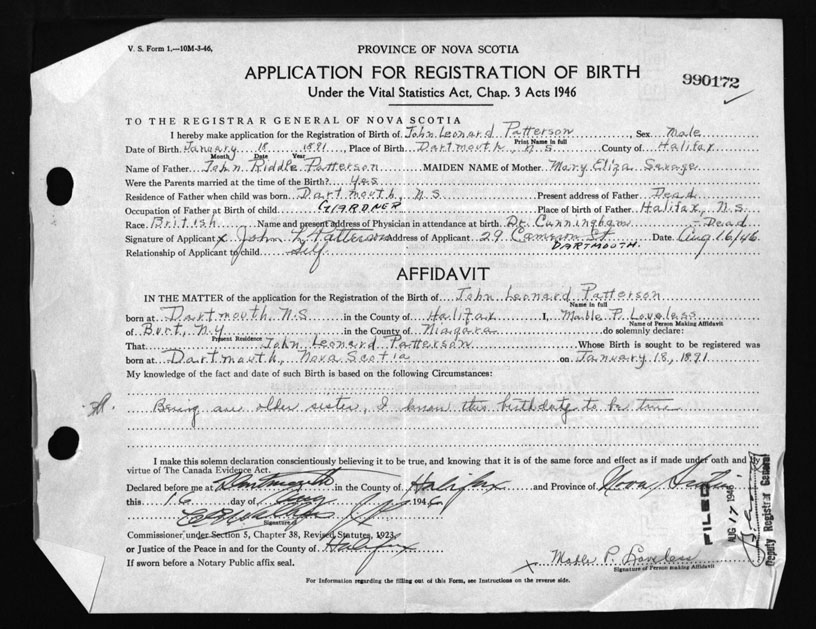 V. S. Form 1.—10M-3-46,
PROVINCE OF NOVA SCOTIA
APPLICATION FOR REGISTRATION OF BIRTH
990172
Under the Vital Statistics Act, Chap. 3 Acts 1946
TO THE REGISTRAR GENERAL OF NOVA SCOTIA
I hereby make application for the Registration of Birth of John Leonard Patterson, Sex Male
Print Name in full
Date of Birth January 18 1891, Place of Birth Dartmouth, N.S. County of Halifax
Month Date Year
Name of Father John Riddle Patterson MAIDEN NAME of Mother Mary Eliza Savage
Were the Parents married at the time of the Birth? Yes
Residence of Father when child was born Dartmouth, N.S Present address of Father Dead
Occupation of Father at Birth of child GIARDNER Place of birth of Father Halifax, N.S.
Race British Name and present address of Physician in attendance at birth Dr. Cunningham - Dead
Signature of Applicant x John L Patterson Address of Applicant 29 Cameron St Date Aug 16/46
DARTMOUTH
Relationship of Applicant to child Self
AFFIDAVIT
IN THE MATTER of the application for the Registration of the Birth of John Leonard Patterson
Name in full
born at Dartmouth, N.S. in the County of Halifax I, Mable P. Loveless
Name of Person Making Affidavit
of Burt, N.Y in the County of Niagara do solemnly declare:
Present Residence
That John Leonard Patterson Whose Birth is sought to be registered was
born at Dartmouth, Nova Scotia on January 18, 1891
My knowledge of the fact and date of such Birth is based on the following Circumstances:
Being an older sister, I know this birthdate to be true
I make this solemn declaration conscientiously believing it to be true, and knowing that it is of the same force and effect as if made under oath and by
virtue of The Canada Evidence Act.
Declared before me at Dartmouth in the County of Halifax and Province of Nova Scotia
this 16 day of Aug 1946
Signature of
Commissioner under Section 5, Chapter 38, Revised Statutes, 1923
or Justice of the Peace in and for the County of Halifax
If sworn before a Notary Public affix seal.
x Mable P. Loveless
Signature of Person making Affidavit
For Information regarding the filling out of this Form, see Instructions on the reverse side.
FILED
AUG 17 194
Deputy Registrar General